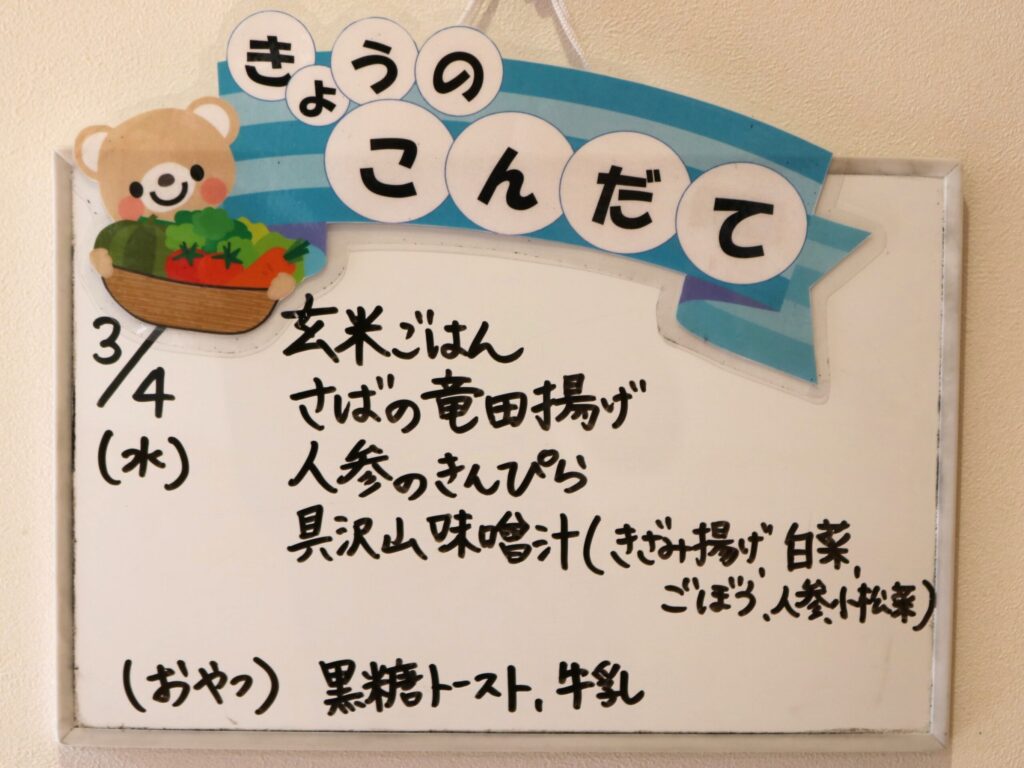 きょうの
こんだて
3/4
(水)
玄米ごはん
さばの竜田揚げ
人参のきんぴら
具沢山味噌汁(きざみ揚げ、白菜、
ごぼう、人参、小松菜)
(おやつ) 黒糖トースト、牛乳